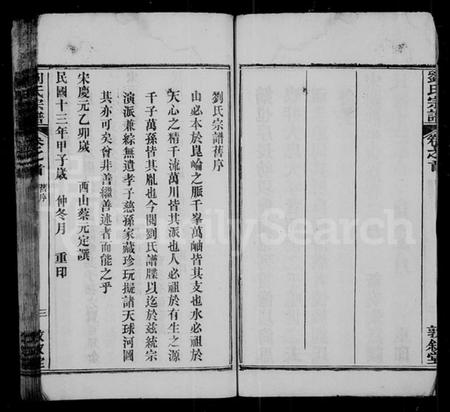 劉氏宗譜 卷之首
敦敘堂
劉氏宗譜舊序
山必本於崑崙之脈千峯萬岫皆其支也水必祖於
天心之精千流萬川皆其派也人必祖於有生之源
千子萬孫皆其胤也今閱劉氏譜牒以迄於茲統宗
演派兼綜無遺孝子慈孫家藏珍玩擬諸天球河圖
其亦可也嘗非善繼善述者而能之乎
宋慶元乙卯歲 西山蔡元定譔
民國十三年甲子歲 仲冬月 重印
劉氏宗譜 卷之首 舊序 三 敦敘堂
FamilySearch